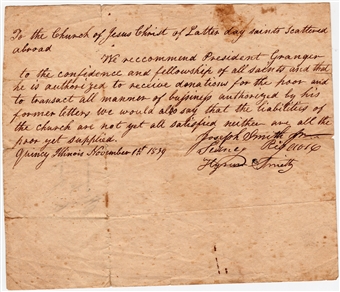 To the Church of Jesus Christ of Latter day saints Scattered
abroad
We reccommend President Granger
to the confidence and fellowship of all saints and that
he is authorized to receive donations for the poor and
to transact all manner of business authorized by his
former letters we would also say that the liabilities of
the church are not yet all satisfied neither are all the
poor yet supplied.
Quincy Illinois November 1st 1839
Joseph Smith Jr
Sidney Rigdon
Hyrum Smith